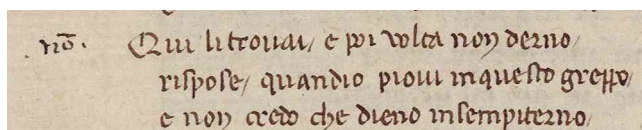 nō. Qui li trovai/ e poi volta non derno/
rispose/ quandio piovi inquesto greppo/
e non credo che dieno insempiterno/